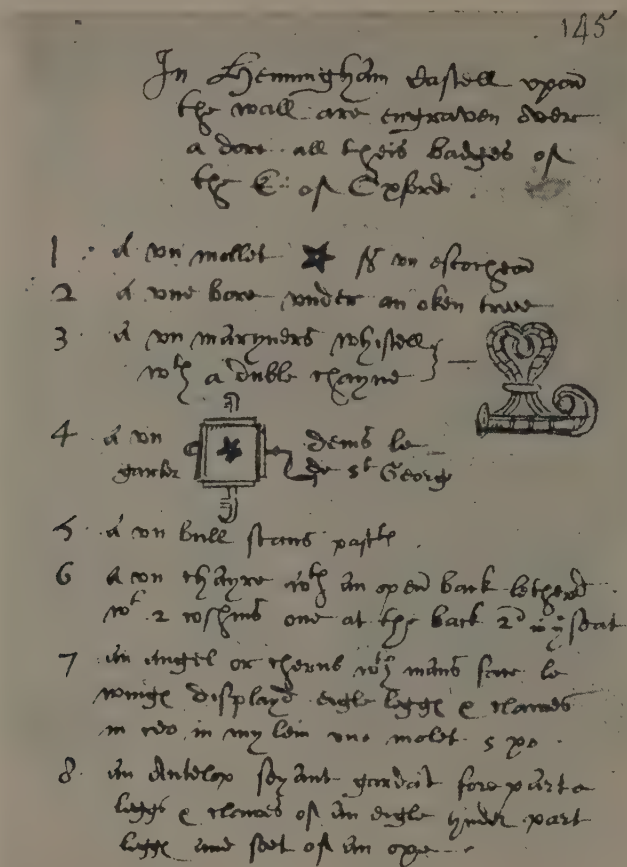 145
In Henningham Castell vpon
the wall are engraven over
a dore all theis badges of
the E: of Oxford.
1 A vn mollet vn escocheon
2 A vne bore vnder an oken tree
3 A vn maryners whistell
wth a duble chayne
4 A vn dens le
garter de st George
5 A vn bull stans
6 A vn chayre wth an open back lethered
wt 2 coshins one at the back 2d in ye seat
7 an Angel or cherub wth mans face le
wings displayd eagle legge & clawes
in my lein vno molet 5 po.
8 an Antelop seyant gardant fore part &
leggs & clawes of an eigle hinder part
legge and feet of an oxe